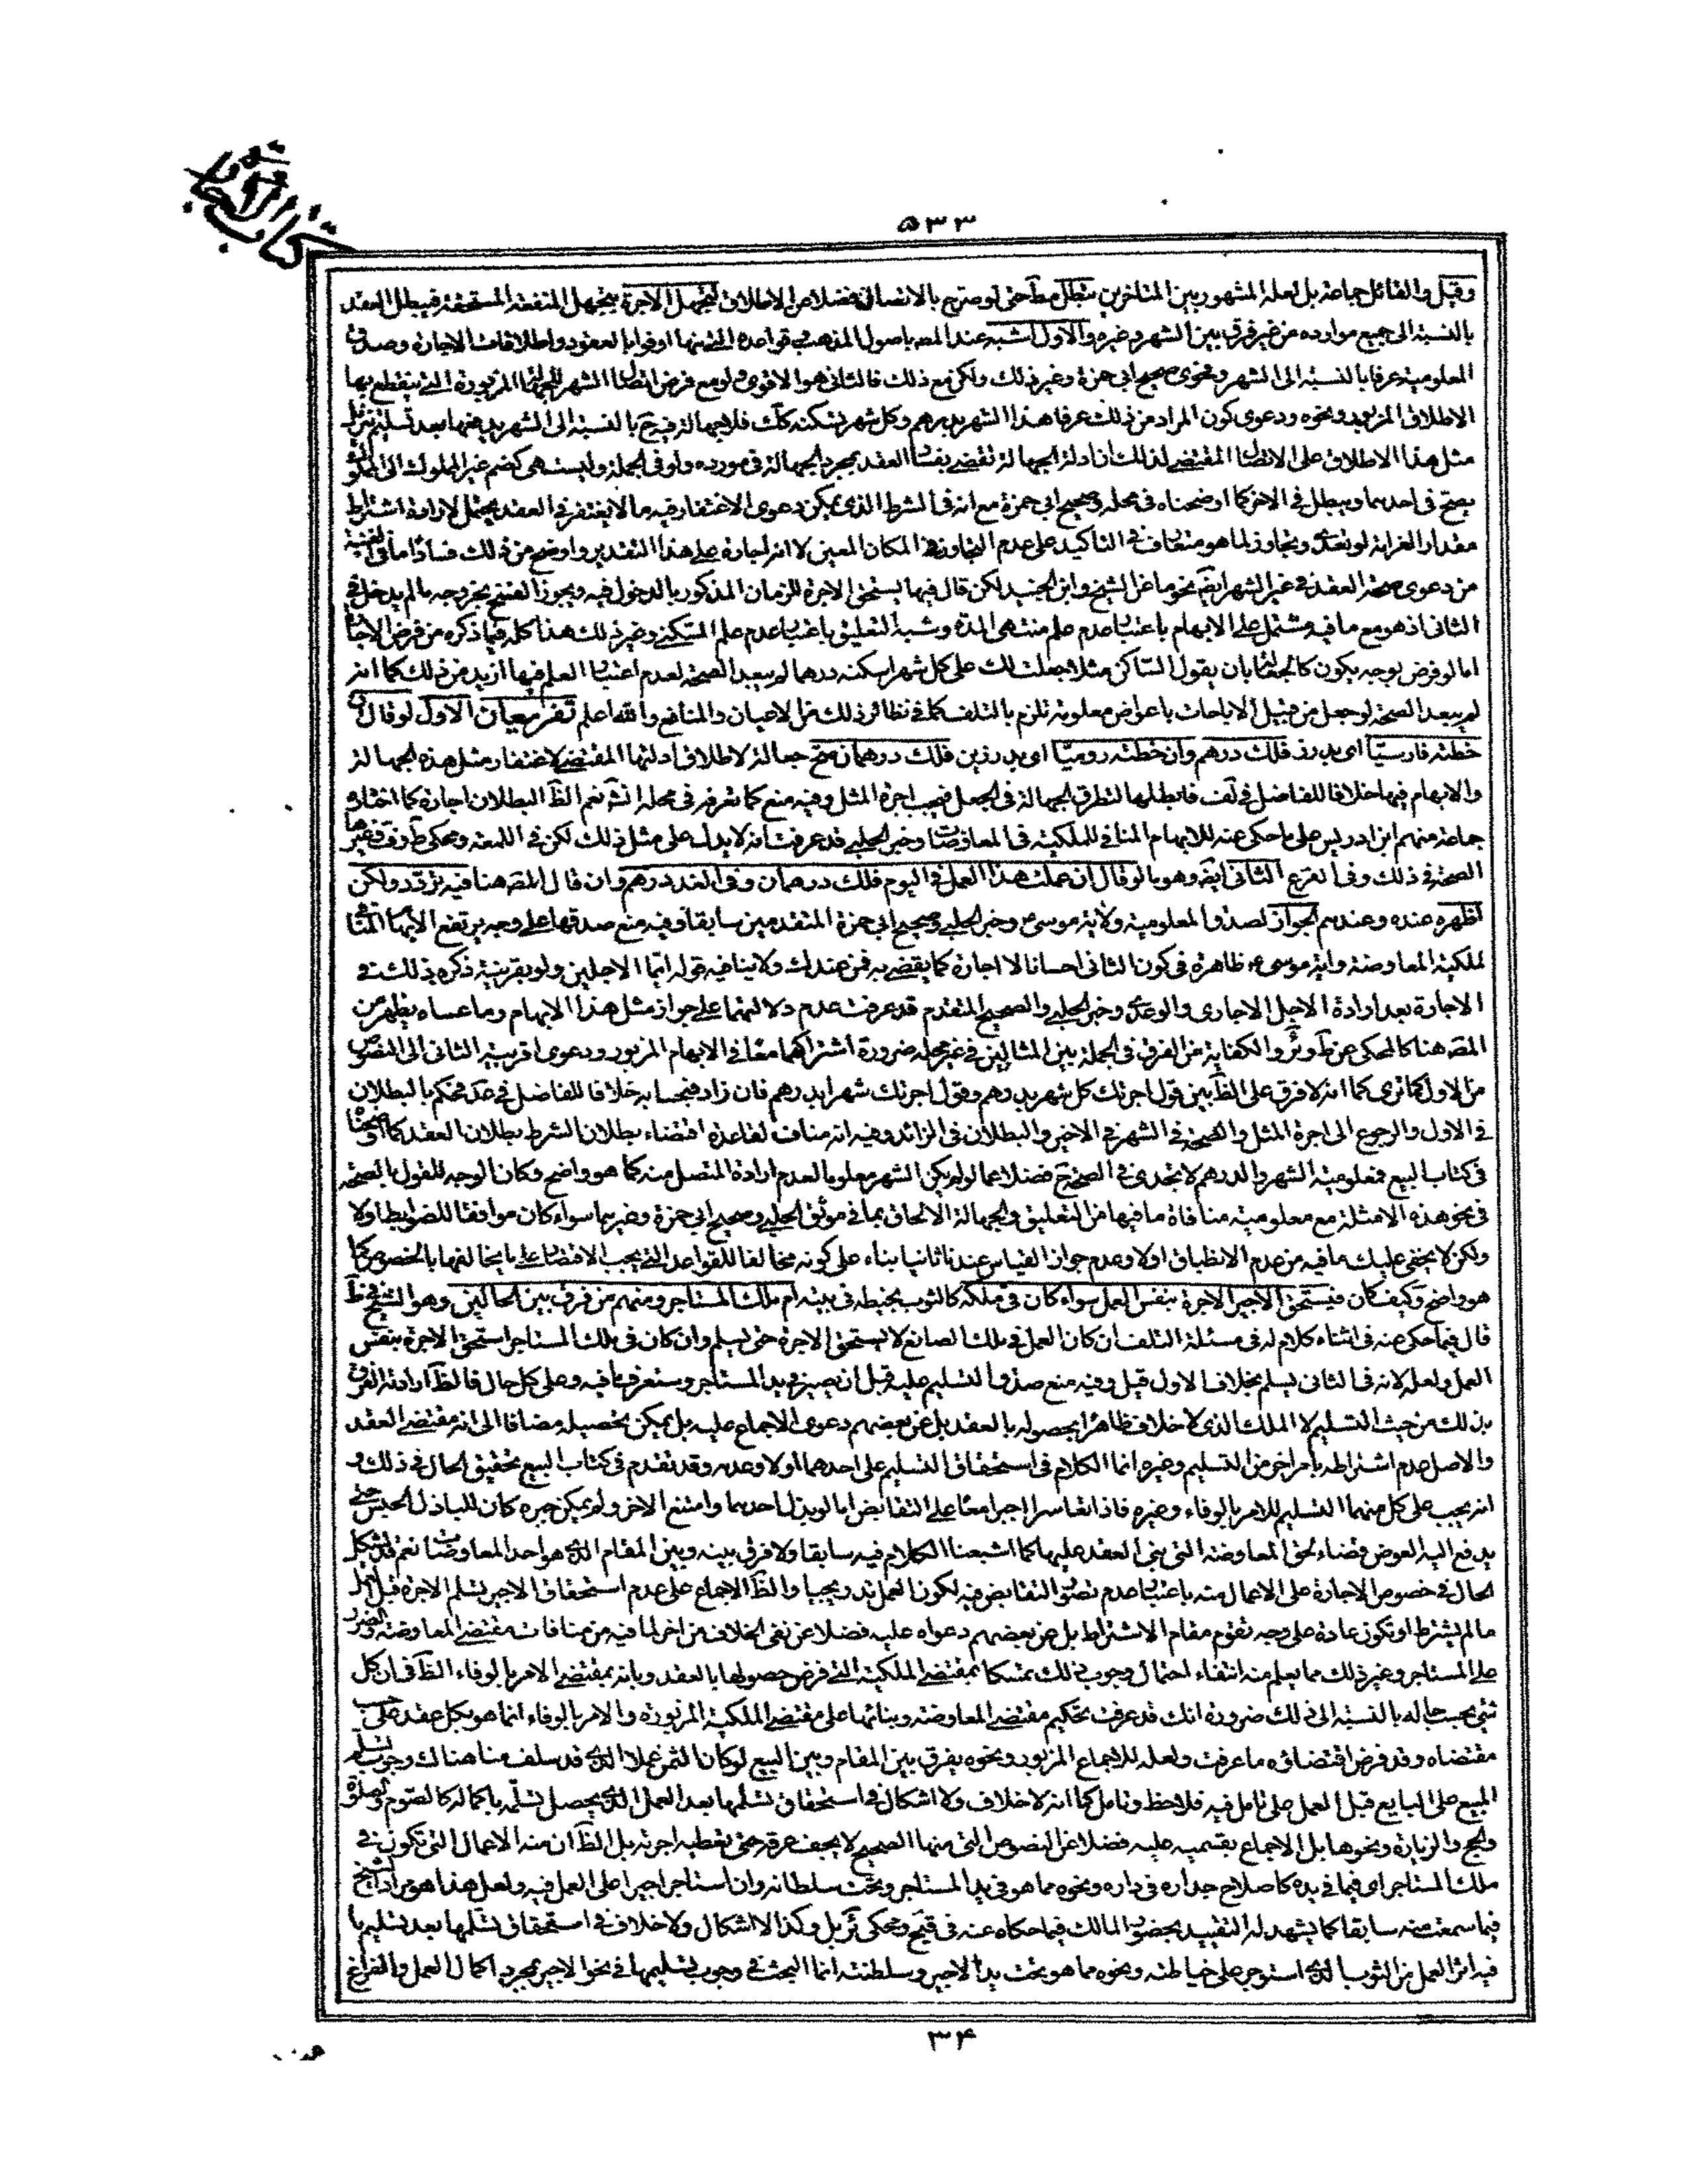 كتاب الاجارة
٥٣٣
وقيل والقائل جماعة بل لعله المشهور بين المتاخرين تبطل مط حتى لو صرح بالاتصال فضلا عن الاطلاق لتجهل الاجرة بتجهل المنفعة المستحقة فيبطل العقد
بالنسبة الى جميع موارده من غير فرق بين الشهر وغيره والاول اشبه عند المصه باصول المذهب وقواعده التي منها اوفوا بالعقود واطلاقات الاجارة وصدق
المعلومية عرفا بالنسبة الى الشهر وفحوى صحيح ابي حمزة وغير ذلك ولكن مع ذلك فالثاني هو الاقوى ولو مع فرض اتصال الشهر للجهالة المزبورة التي ينقطع بها
الاطلاق المزبور ونحوه ودعوى كون المراد من ذلك عرفا هذا الشهر بدرهم وكل شهر تسكنه كك فلا جهالة فيه ح بالنسبة الى الشهر يدفعها بعد تسليم تنزيل
مثل هذا الاطلاق على الاتصال المقتضى لذلك ان ادلة الجهالة تقضي بفساد العقد بمجرد الجهالة في مورده ولو في الجملة وليست هي كضم غير المملوك الى المملوك
يصح في احدهما ويبطل في الاخر كما اوضحناه في محله وصحيح ابي حمزة مع انه في الشرط الذي يمكن دعوى الاغتفار فيه ما لا يغتفر في العقد يحتمل لارادة اشتراط
مقدار الغرامة لو تعدى وتجاوز لما هو متعارف في التاكيد على عدم التجاوز عن المكان المعين لا انه اجارة على هذا التقدير واوضح من ذلك فسادا ما في الغنية
من دعوى صحة العقد في غير الشهر ايضا نحو ما عن الشيخ وابن الجنيد لكن قال فيها يستحق الاجرة للزمان المذكور بالدخول فيه ويجوز الفسخ بخروجه ما لم يدخل في
الثاني اذ هو مع ما فيه مشتمل على الابهام باعتبار عدم علم منتهى المدة وشبه التعليق باعتبار عدم علم السكنى وغير ذلك هذا كله فيما ذكره من فرض الاجارة
اما لو فرض بوجه يكون كالجعالة بان يقول الساكن مثلا جعلت لك على كل شهر اسكنه درهما لم يبعد الصحة لعدم اعتبار العلم فيها ازيد من ذلك كما انه
لم يبعد الصحة لو جعل من قبيل الاباحات باعواض معلومة تلزم بالتلف كما في نظائر ذلك من الاعيان والمنافع والله اعلم تفريعان الاول لو قال ان
خطته فارسيا اى بدرز فلك درهم وان خطته روميا اى بدرزين فلك درهمان صح جعالة لاطلاق ادلتها المقتضى لاغتفار مثل هذه الجهالة
والابهام فيها خلافا للفاضل في لف فابطلها لتطرق الجهالة في الجعل فيجب اجرة المثل وفيه منع كما تعرفه في محله انش نعم الظ البطلان اجارة كما اختاره
جماعة منهم ابن ادريس على ما حكى عنه للابهام المنافي للملكية في المعاوضات وخبر الحلبي قد عرفت انه لا يدل على مثل ذلك لكن في اللمعة ومحكى ط وف وغيرهما
الصحة في ذلك وفي الفرع الثاني ايضا وهو ما لو قال ان عملت هذا العمل في اليوم فلك درهمان وفي الغد درهم وان قال المصه هنا فيه تردد ولكن
اظهره عنده وعندهم الجواز لصدق المعلومية ولاية موسى ع وخبر الحلبي وصحيح ابي حمزة المتقدمين سابقا وفيه منع صدقها على وجه يرتفع الابهام المنافي
لملكية المعاوضة واية موسى ع ظاهرة في كون الثاني احسانا لا اجارة كما يقضي به فمن عندك ولا ينافيه قوله ايما الاجلين ولو بقرينة ذكره ذلك في
الاجارة بعد ارادة الاجل الاجاري والوعدي وخبر الحلبي والصحيح المتقدم قد عرفت عدم دلالتهما على جواز مثل هذا الابهام وما عساه يظهر من
المصه هنا كالمحكى عن ط وئر والكفاية من الفرق في الجملة بين المثالين في غير محله ضرورة اشتراكهما معا في الابهام المزبور ودعوى اقربية الثاني الى النصوص
من الاول كما ترى كما انه لا فرق على الظ بين قول اجرتك كل شهر بدرهم وقول اجرتك شهرا بدرهم فان زاد فبحسابه خلافا للفاضل في عد فحكم بالبطلان
في الاول والرجوع الى اجرة المثل والصحة في الشهر في الاخير والبطلان في الزائد وفيه انه مناف لقاعدة اقتضاء بطلان الشرط بطلان العقد كما اوضحناه
في كتاب البيع فمعلومية الشهر والدرهم لا تجدى في الصحة ح فضلا عما لو لم يكن الشهر معلوما لعدم ارادة المتصل منه كما هو واضح وكان الوجه للقول بالصحة
في نحو هذه الامثلة مع معلومية منافاة ما فيها من التعليق والجهالة الالحاق بما في موثق الحلبي وصحيح ابي حمزة وغيرهما سواء كان موافقا للضوابط اولا
ولكن لا يخفى عليك ما فيه من عدم الانطباق اولا وعدم جواز القياس عندنا ثانيا بناء على كونه مخالفا للقواعد التي يجب الاقتصار على ما يخالفها بالخصوص كما
هو واضح وكيف كان فيستحق الاجير الاجرة بنفس العمل سواء كان في ملكه كالثوب يخيطه في بيته ام ملك المستاجر ومنهم من فرق بين الحالين وهو الشيخ في ط
قال فيما حكى عنه في اثناء كلام له في مسئلة التلف ان كان العمل في ملك الصانع لا يستحق الاجرة حتى يسلم وان كان في ملك المستاجر استحق الاجرة بنفس
العمل ولعله لانه في الثاني يسلم بخلاف الاول قيل وفيه منع صدق التسليم عليه قبل ان يصير في يد المستاجر وستعرف ما فيه وعلى كل حال فالظ ارادة الفرق
بذلك من حيث التسليم لا الملك الذي لا خلاف ظاهرا بحصوله بالعقد بل عن بعضهم دعوى الاجماع عليه بل يمكن تحصيله مضافا الى انه مقتضى العقد
والاصل عدم اشتراطه بامر اخر من التسليم وغيره انما الكلام في استحقاق التسليم على احدهما اولا وعدمه وقد تقدم في كتاب البيع تحقيق الحال في ذلك و
انه يجب على كل منهما التسليم للامر بالوفاء وغيره فاذا تعاسرا اجبرا معا على التقابض اما لو بذل احدهما وامتنع الاخر ولم يمكن جبره كان للباذل الحبس حتى
يدفع اليه العوض قضاء لحق المعاوضة التي بني العقد عليها كما اشبعنا الكلام فيه سابقا ولا فرق بينه وبين المقام الذي هو احد المعاوضات نعم قد يشكل
الحال في خصوص الاجارة على الاعمال منه باعتبار عدم تصور التقابض فيه لكون العمل تدريجيا والظ الاجماع على عدم استحقاق الاجير تسلم الاجرة قبل العمل
ما لم يشترط او تكون عادة على وجه تقوم مقام الاشتراط بل عن بعضهم دعواه عليه فضلا عن نفى الخلاف من اخر لما فيه من منافات مقتضى المعاوضة والضرر
على المستاجر وغير ذلك مما يعلم منه انتفاء احتمال وجوب ذلك تمسكا بمقتضى الملكية التي فرض حصولها بالعقد وبانه بمقتضى الامر بالوفاء الظ في ان كل
شئ بحسب حاله بالنسبة الى ذلك ضرورة انك قد عرفت تحكيم مقتضى المعاوضة وبنائها على مقتضى الملكية المزبورة والامر بالوفاء انما هو بكل عقد على حسب
مقتضاه وقد فرض اقتضاؤه ما عرفت ولعله للاجماع المزبور ونحوه يفرق بين المقام وبين البيع لو كان الثمن عملا الذي قد سلف منا هناك وجوب تسليم
المبيع على البايع قبل العمل على تامل فيه فلاحظ وتامل كما انه لا خلاف ولا اشكال في استحقاق تسلمها بعد العمل الذي يحصل تسلمه باكماله كالصوم والصلوة
والحج والزيارة ونحوها بل الاجماع بقسميه عليه فضلا عن النصوص التي منها الصحيح لا يجف عرقه حتى تعطيه اجرته بل الظ ان منه الاعمال التي تكون في
ملك المستاجر او فيما في يده كاصلاح جداره في داره ونحوه مما هو في يد المستاجر وتحت سلطانه وان استاجر اجيرا على العمل فيه ولعل هذا هو مراد الشيخ
فيما سمعت منه سابقا كما يشهد له التقييد بحضور المالك فيما حكاه عنه في قيح ومحكى ئر بل وكذا لا اشكال ولا خلاف في استحقاق تسلمها بعد تسليم ما
فيه اثر العمل من الثوب الذي استوجر على خياطته ونحوه مما هو تحت يد الاجير وسلطنته انما البحث في وجوب تسليمها في نحو الاجير بمجرد اكمال العمل والفراغ
٣٤